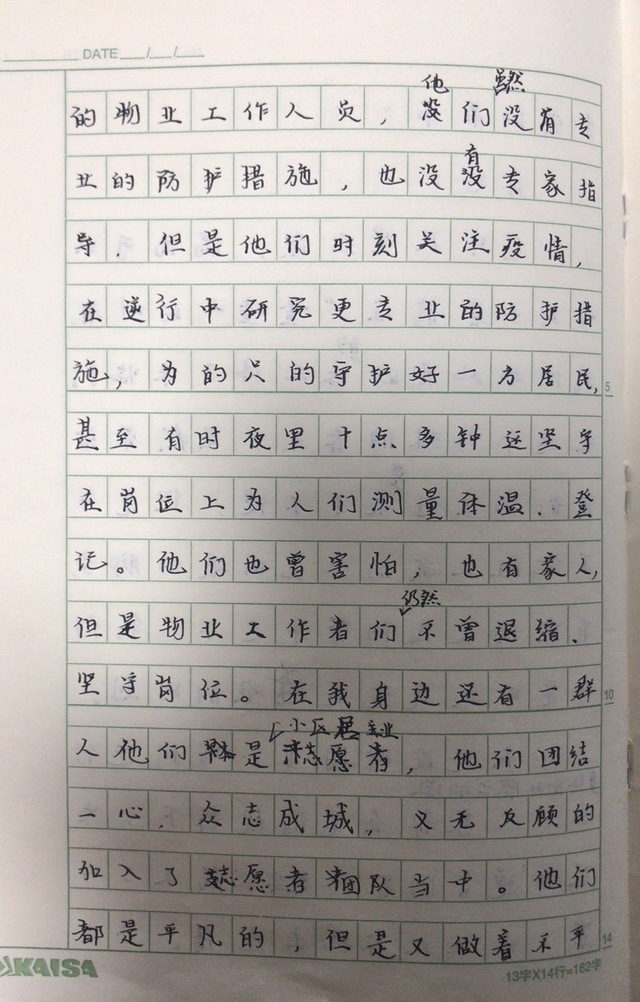 DATE / /
他 虽然
的物业工作人员，没们没有专
有
业的防护措施，也没没专家指
导．但是他们时刻关注疫情，
在逆行中研究更专业的防护措
施，为的只的守护好一方居民，
5
甚至有时夜里十点多钟还坚守
在岗位上为人们测量体温、登
记。他们也曾害怕，也有家人，
仍然
但是物业工作者们不曾退缩、
坚守岗位。在我身边还有一群
10
小区 业
人他们是志愿者，他们团结
一心．众志成城，义无反顾的
加入了志愿者团队当中。他们
都是平凡的，但是又做着不平
14
KAISA
13字X14行=182字